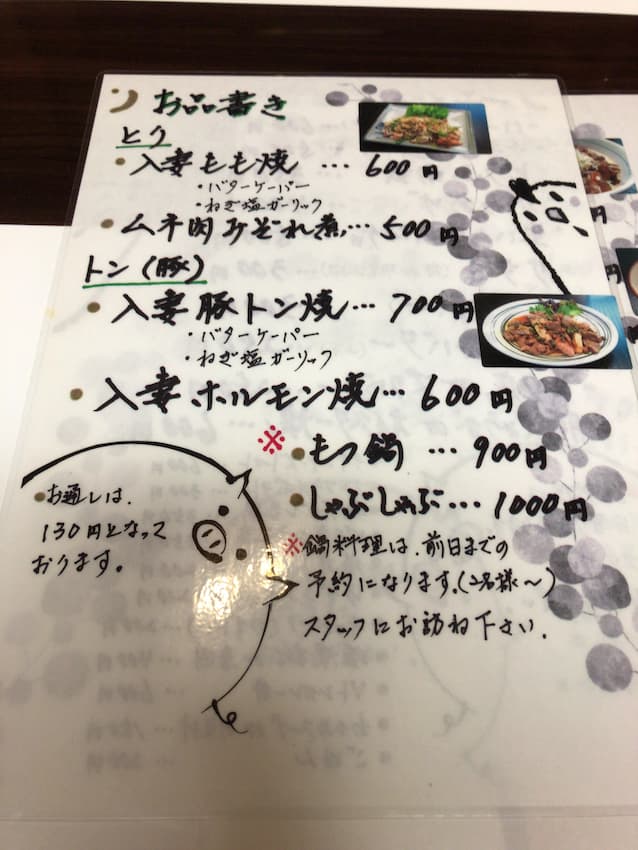 お品書き
とり
・入妻もも焼 … 600円
・バターケーパー
・ねぎ塩ガーリック
・ムネ肉みぞれ煮… 500円
トン(豚)
・入妻豚トン焼… 700円
・バターケーパー
・ねぎ塩ガーリック
・入妻ホルモン焼… 600円
※・もつ鍋 … 900円
・しゃぶしゃぶ… 1000円
・お通しは、
130円となって
おります。
※鍋料理は、前日までの
予約になります。(2名様~)
スタッフにお訪ね下さい.